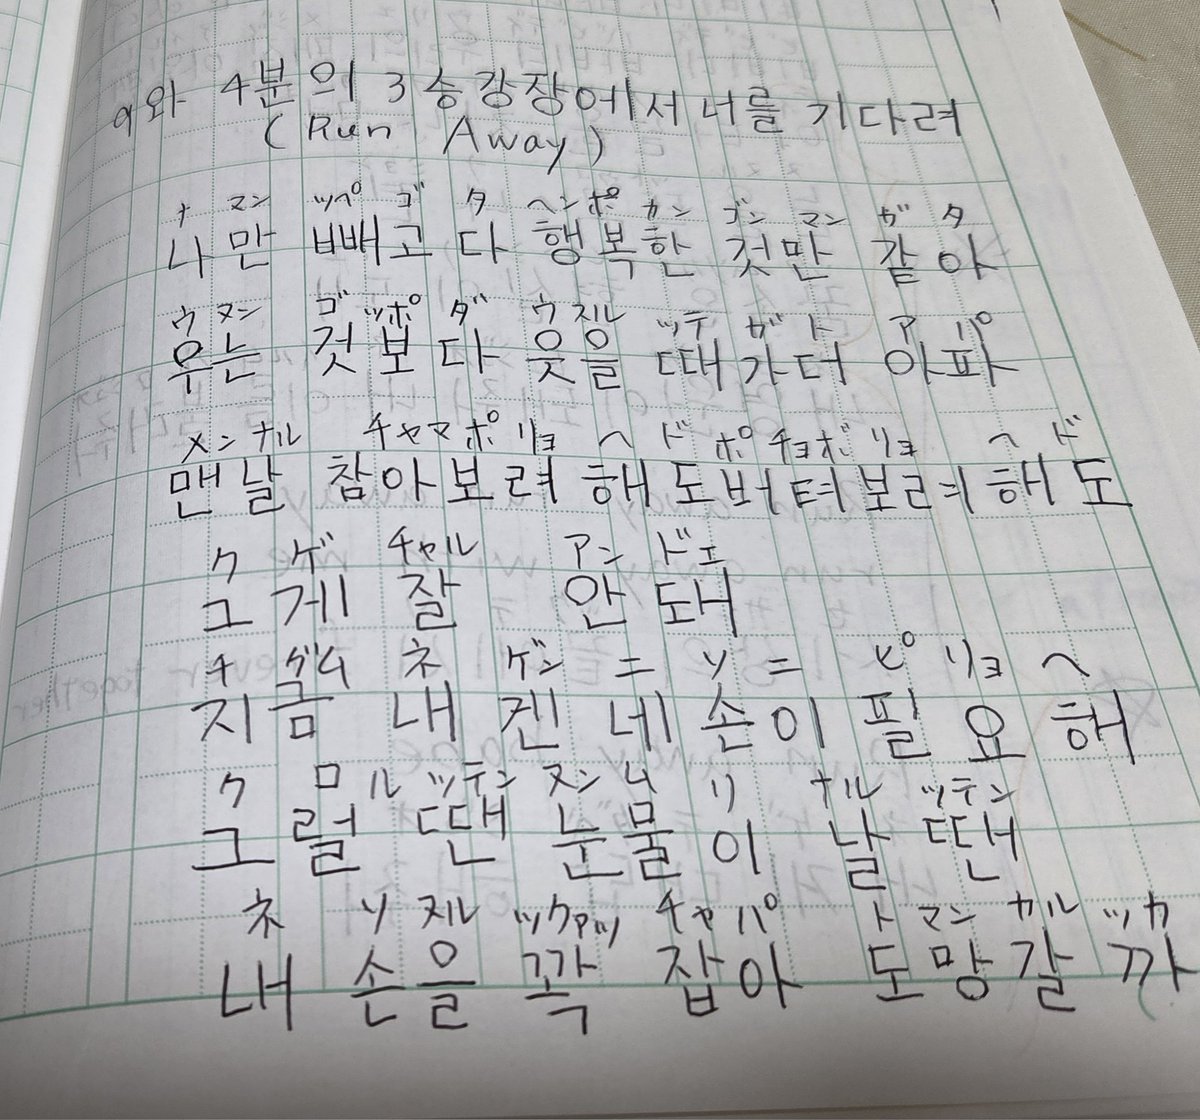 9와 4분의 3 승강장에서 너를 기다려
(Run Away)
ナ マン ッペ ゴ タ ヘンポ カン ゴン マン ガ タ
나만 빼고 다 행복한 것만 같아
ウ ヌン ゴ ッポ ダ ウ スル ッテ ガ ト ア パ
우는 것보다 웃을 때가 더 아파
メン ナル チャマ ポ リョ ヘ ド ポ チョ ボ リョ ヘ ド
맨날 참아보려 해도 버텨보려 해도
ク ゲ チャル アン ドェ
그게 잘 안 돼
チ グム ネ ゲン ニ ソ ニ ピ リョ ヘ
지금 내겐 네 손이 필요해
ク ロル ッテン ヌン ム リ ナル ッテン
그럴 땐 눈물이 날 땐
ネ ソ ヌル ックァッ チャ パ ト マン カル ッカ
내 손을 꽉 잡아 도망갈까